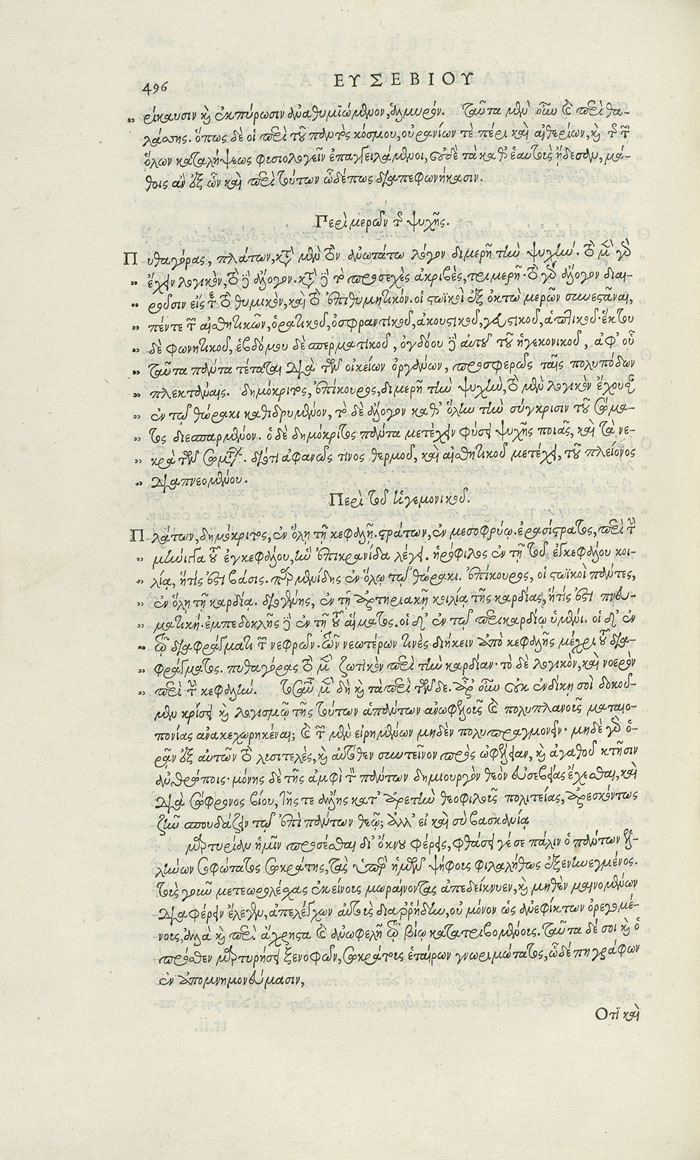 496 ΕΥΣΕΒΙΟΥ
ρίκαυσιν καὶ ἐκπύρωσιν ἀναθυμιώμενον, ἁλμυρόν. Ταῦτα μὲν οὖν καὶ περὶ θα-
λάσσης. ὅπως δὲ οἱ περὶ τοῦ παντὸς κόσμου, οὐρανίων τὲ πέρι καὶ αἰθερίων, καὶ τῆς τῶν
ὅλων καταλήψεως φυσιολογεῖν ἐπαγγειλάμενοι, οὐδὲ τὰ καθ' ἑαυτοὺς ᾔδεσαν, μά-
θοις ἂν ἐξ ὧν καὶ περὶ τούτων ὧδέπως διαπεφωνήκασιν.
Περὶ μερῶν τῆς ψυχῆς.
Πυθαγόρας, πλάτων, κατὰ μὲν τὸν ἀνωτάτω λόγον διμερῆ τὴν ψυχήν. τὸ μὲν γὰρ
ἔχειν λογικὸν, τὸ δὲ ἄλογον. κατὰ δὲ τὸ προσεχὲς ἀκριβὲς, τριμερῆ. τὸ γὰρ ἄλογον διαι-
ροῦσιν εἰς τε τὸ θυμικὸν, καὶ τὸ ἐπιθυμητικόν. οἱ στωϊκοὶ ἐξ ὀκτὼ μερῶν συνεστάναι,
πέντε τῶν αἰσθητικῶν, ὁρατικοῦ, ὀσφραντικοῦ, ἀκουστικοῦ, γευστικοῦ, ἁπτικοῦ· ἕκτου
δὲ φωνητικοῦ, ἑβδόμου δὲ σπερματικοῦ, ὀγδόου δὲ αὐτοῦ τοῦ ἡγεμονικοῦ, ἀφ' οὗ
ταῦτα πάντα τέταται διὰ τῶν οἰκείων ὀργάνων, προσφερῶς ταῖς πολυπόδων
πλεκτάναις. δημόκριτος, ἐπίκουρος, διμερῆ τὴν ψυχὴν, τὸ μὲν λογικὸν ἔχουσαν
ἐν τῷ θώρακι καθιδρυμένον, τὸ δὲ ἄλογον καθ' ὅλην τὴν σύγκρισιν τοῦ σώμα-
τος διεσπαρμένον. ὁ δὲ δημόκριτος πάντα μετέχειν φύσει ψυχῆς ποιᾶς, καὶ τὰ νε-
κρὰ τῶν σωμάτων. διότι ἀφανῶς τινος θερμοῦ, καὶ αἰσθητικοῦ μετέχει, τοῦ πλείονος
διαπνεομένου.
Περὶ τοῦ ἡγεμονικοῦ.
Πλάτων, δημόκριτος, ἐν ὅλῃ τῇ κεφαλῇ. στράτων, ἐν μεσοφρύῳ. ἐρασίστρατος, περὶ τὴν
μήνιγγα τοῦ ἐγκεφάλου, ἣν ἐπικρανίδα λέγει. ἡρόφιλος ἐν τῇ τοῦ ἐγκεφάλου κοι-
λίᾳ, ἥτις ἐστὶ βάσις. παρμενίδης ἐν ὅλῳ τῷ θώρακι. ἐπίκουρος, οἱ στωϊκοὶ πάντες,
ἐν ὅλῃ τῇ καρδίᾳ. διογένης, ἐν τῇ ἀρτηριακῇ κοιλίᾳ τῆς καρδίας, ἥτις ἐστὶ πνευ-
ματική. ἐμπεδοκλῆς δὲ ἐν τῇ τοῦ αἵματος. οἱ δ' ἐν τῷ περικαρδίῳ ὑμένι. οἱ δ' ἐν
τῷ διαφράγματι τῶν νεφρῶν. τῶν νεωτέρων τινὲς διήκειν ἀπὸ κεφαλῆς μέχρι τοῦ δια-
φράγματος. πυθαγόρας τὸ μὲν ζωτικὸν περὶ τὴν καρδίαν· τὸ δὲ λογικὸν, καὶ νοερὸν
περὶ τὴν κεφαλήν. Ταῦτα μὲν δὴ καὶ τὰ περὶ τῶνδε. ἆρ' οὖν οὐκ ἐνδίκῃ σοὶ δοκοῦ-
μεν κρίσει καὶ λογισμῷ τῆς τούτων ἁπάντων ἀνωφελοῦς καὶ πολυπλανοῦς ματαιο-
πονίας ἀνακεχωρηκέναι; καὶ τῶν μὲν εἰρημένων μηδὲν πολυπραγμονεῖν· μηδὲ γὰρ ὁ-
ρᾶν ἐξ αὐτῶν τὸ λυσιτελὲς, καὶ αὐτόθεν συντεῖνον πρὸς ὠφέλειαν, καὶ ἀγαθοῦ κτῆσιν
ἀνθρώποις· μόνης δὲ τῆς ἀμφὶ τὸν πάντων δημιουργὸν θεὸν εὐσεβείας ἔχεσθαι, καὶ
διὰ σώφρονος βίου, τῆς τε ἄλλης κατ' ἀρετὴν θεοφιλοῦς πολιτείας, ἀρεσκόντως
ζῆν σπουδάζειν τῷ ἐπὶ πάντων θεῷ; ἀλλ' εἰ καὶ σὺ βασκανίᾳ
μαρτυρίαν ἡμῖν προσέσθαι δι' ὄκνου φέρεις, φθάσει γέ σε πάλιν ὁ πάντων Ἑλ-
λήνων σοφώτατος σωκράτης, τὰς ὑπὲρ ἡμῶν ψήφους φιλαλήθως ἐξενηνεγμένος.
τοὺς γοῦν μετεωρολέσχας ἐκείνοις μωραίνοντας ἀπεδείκνυεν, καὶ μηθὲν μαινομένων
διαφέρειν ἔλεγεν, ἀπελέγχων αὐτοὺς διαῤῥήδην, οὐ μόνον ὡς ἀνεφίκτων ὀρεγομέ-
νοις, ἀλλὰ καὶ περὶ ἄχρηστα καὶ ἀνωφελῆ τῷ βίῳ κατατριβομένοις. ταῦτα δέ σοι καὶ ὁ
πρόσθεν μαρτυρήσει ξενοφῶν, σωκράτους ἑταίρων γνωριμώτατος, ὧδέ πη γράφων
ἐν ἀπομνημονεύμασιν,
Οτι καὶ